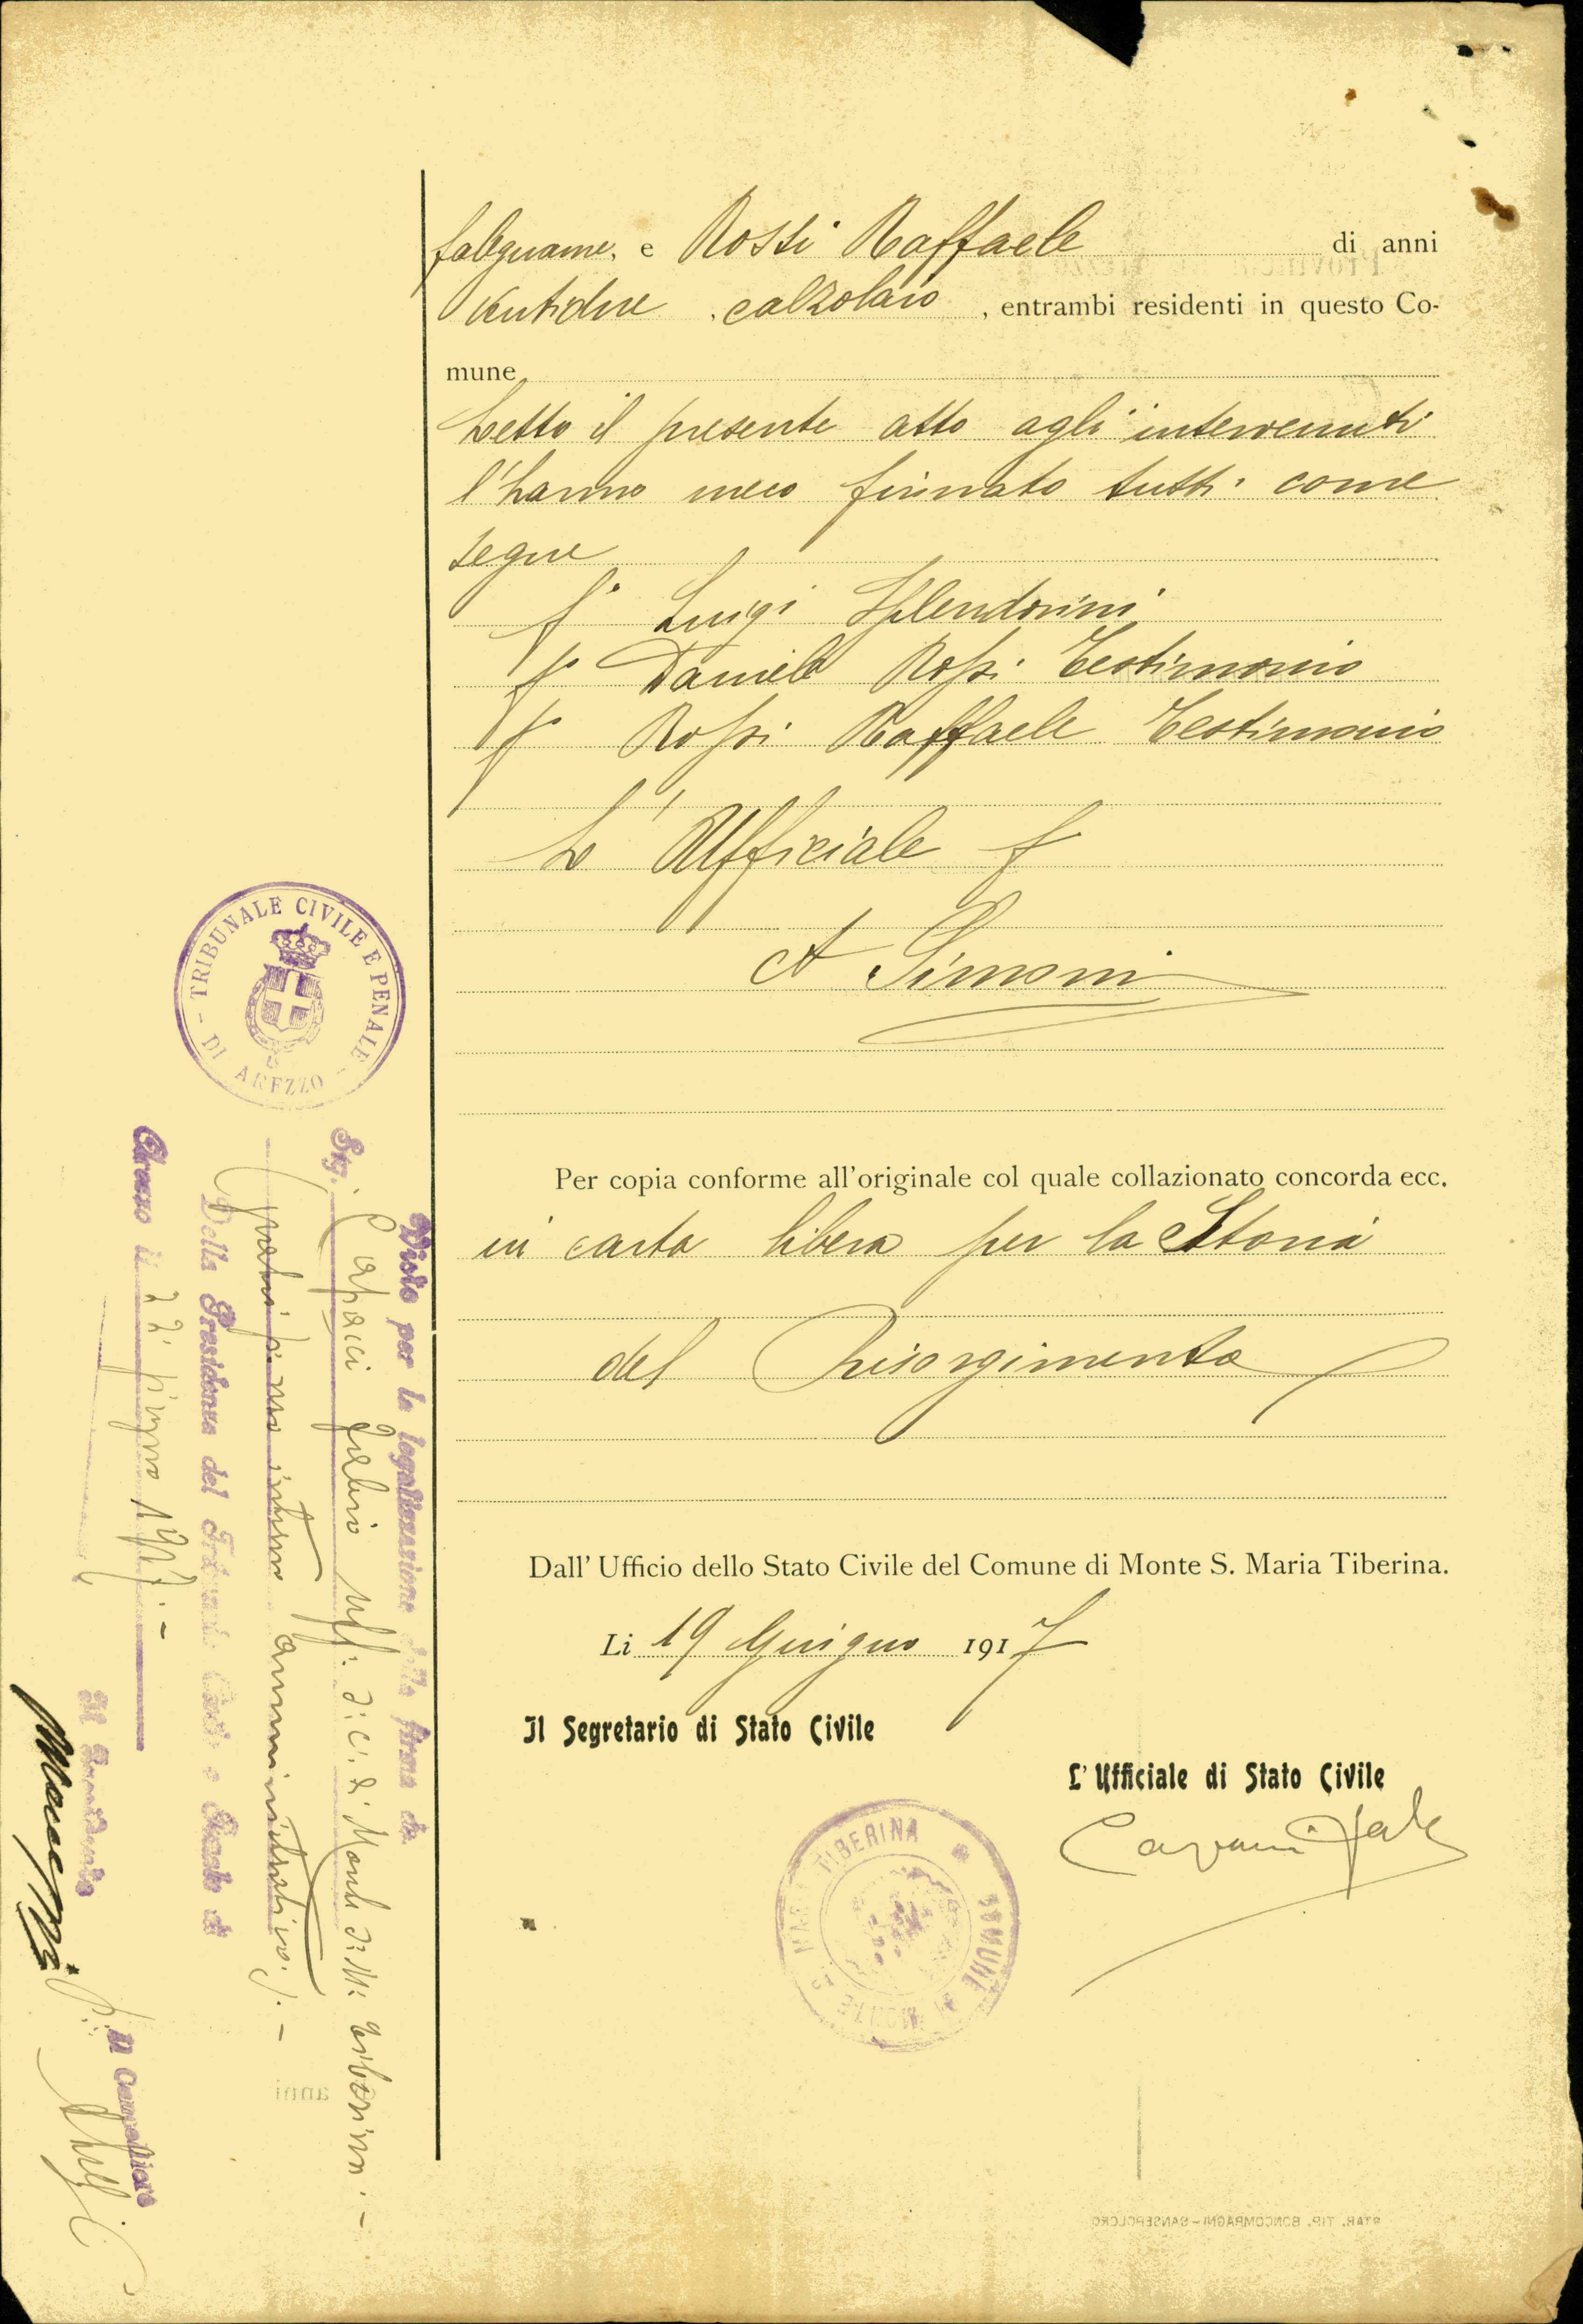 falegname, e Rossi Raffaele di anni
ventidue, calzolaio, entrambi residenti in questo Co-
mune
Letto il presente atto agli intervenuti
l'hanno meco firmato tutti come
segue
f° Luigi Splendorini
f° Daniele Rossi Testimonio
f° Rossi Raffaele Testimonio
L'Ufficiale f
A Simoni
Per copia conforme all'originale col quale collazionato concorda ecc.
in carta libera per la Storia
del Risorgimento
Dall' Ufficio dello Stato Civile del Comune di Monte S. Maria Tiberina.
Li 19 Giugno 1917
Il Segretario di Stato Civile
L'Ufficiale di Stato Civile
COMUNE DI MONTE S. MARIA TIBERINA
TRIBUNALE CIVILE E PENALE - DI AREZZO -
Visto per la legalizzazione della firma del
Sig. Capacci Fabio Uff: di Monte S. M: Tiberina. -
amministrativo). -
Della Presidenza del Tribunale Civile e Penale di
Arezzo li 22 giugno 1917. -
Il Presidente
Il Cancelliere
anni
STAB. TIP. BONCOMPAGNI - SANSEPOLCRO